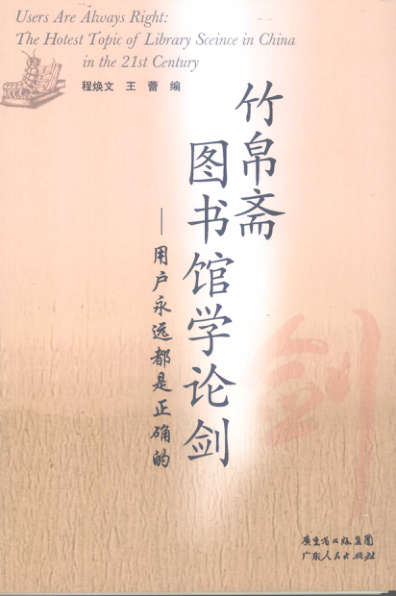 Users Are Always Right:
The Hotest Topic of Library Sceince in China
in the 21st Century
程焕文 王蕾 编
竹帛斋
图书馆学论剑
——用户永远都是正确的
剑
广东省出版集团
广东人民出版社